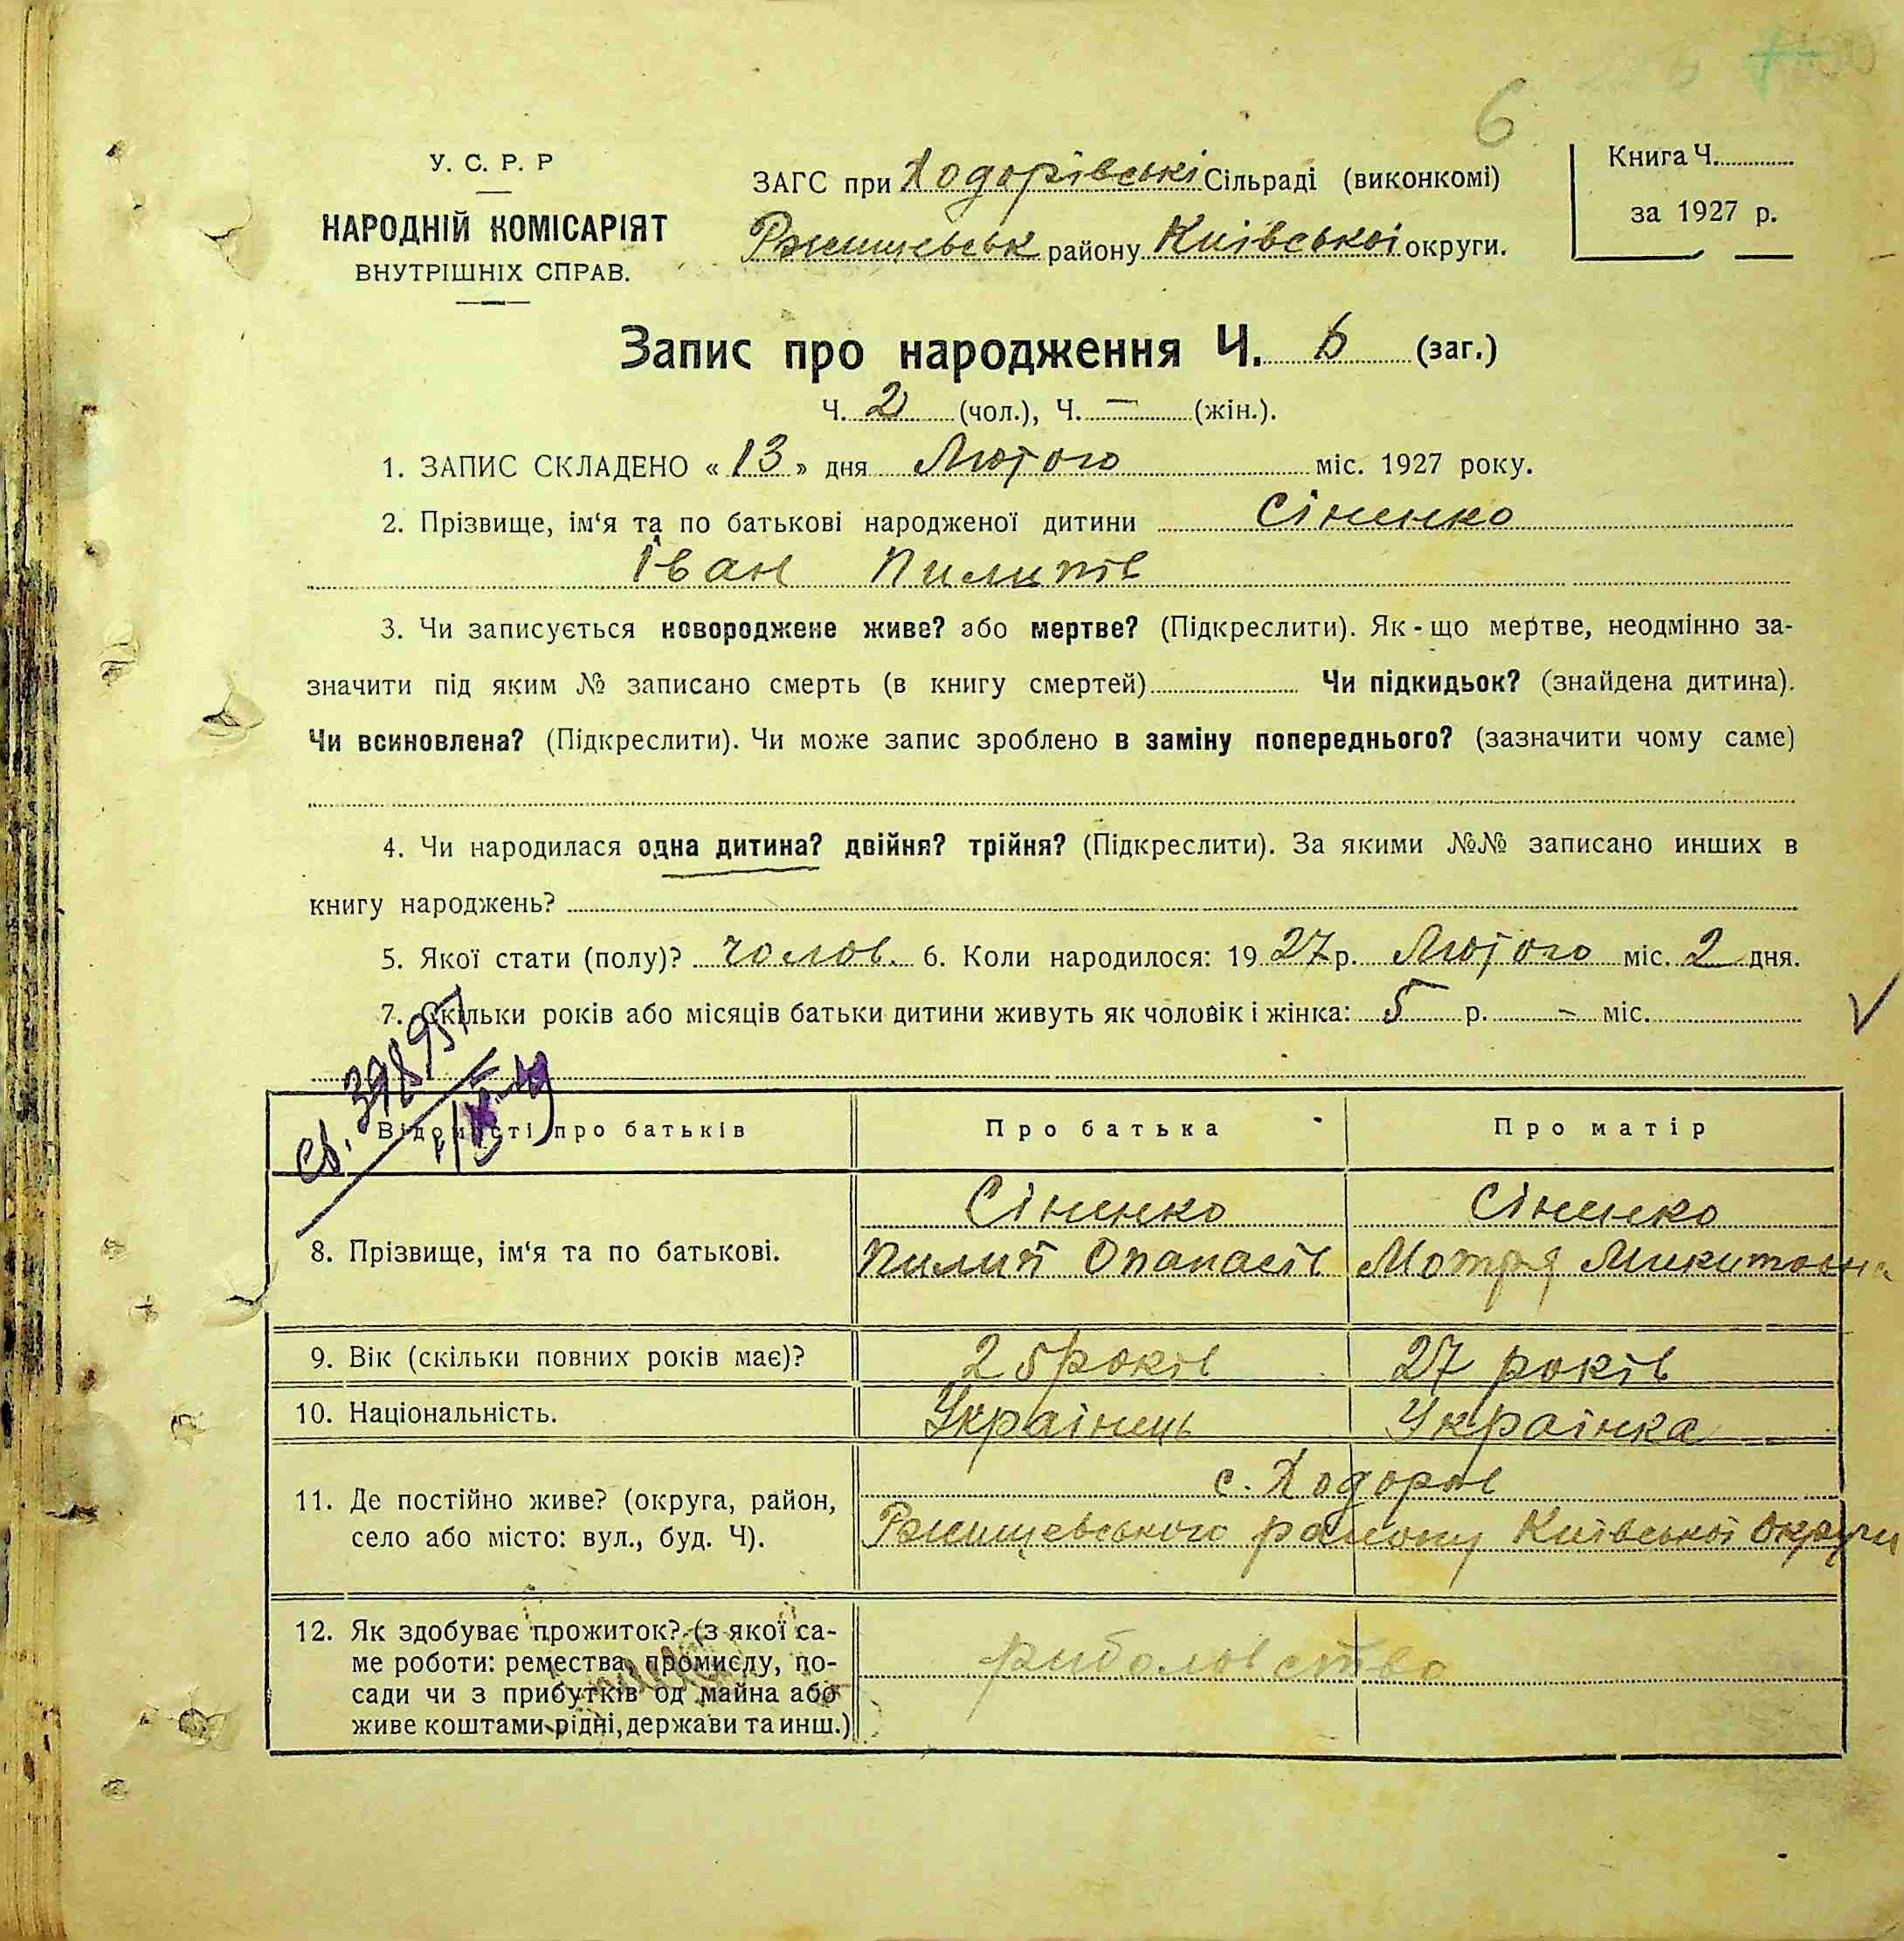 6
У. С. Р. Р
НАРОДНІЙ КОМІСАРІЯТ
ВНУТРІШНІХ СПРАВ.
ЗАГС при Ходорівські Сільраді (виконкомі)
Ржищевськ району Київської округи.
Книга Ч.
за 1927 р.
Запис про народження Ч. 6 (заг.)
Ч. 2 (чол.), Ч. — (жін.).
1. ЗАПИС СКЛАДЕНО « 13 » дня Лютого міс. 1927 року.
2. Прізвище, ім‘я та по батькові народженої дитини Сіненко
Іван Пилипів
3. Чи записується новороджене живе? або мертве? (Підкреслити). Як-що мертве, неодмінно за-
значити під яким № записано смерть (в книгу смертей) Чи підкидьок? (знайдена дитина).
Чи всиновлена? (Підкреслити). Чи може запис зроблено в заміну попереднього? (зазначити чому саме)
4. Чи народилася одна дитина? двійня? трійня? (Підкреслити). За якими №№ записано инших в
книгу народжень?
5. Якої стати (полу)? чолов. 6. Коли народилося: 1927 р. Лютого міс. 2 дня.
7. Скільки років або місяців батьки дитини живуть як чоловік і жінка: 5 р. – міс.
Відомості про батьків
Про батька
Про матір
8. Прізвище, ім‘я та по батькові.
Сіненко
Пилип Опанасів
Сіненко
Мотря Микитовна
9. Вік (скільки повних років має)?
25 років
27 років
10. Національність.
Українець
Українка
11. Де постійно живе? (округа, район,
село або місто: вул., буд. Ч).
с. Ходорів
Ржищевського району Київської округи
12. Як здобуває прожиток? (з якої са-
ме роботи: ремества, промислу, по-
сади чи з прибутків од майна або
живе коштами рідні, держави та инш.)
риболовство